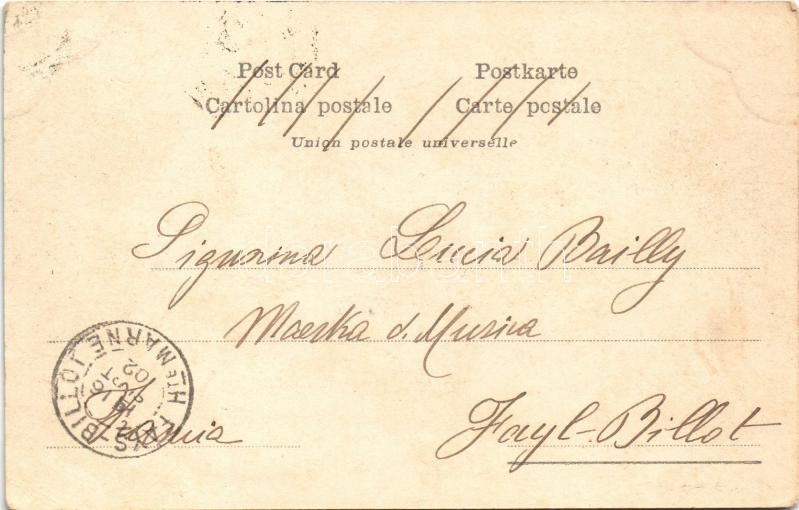 Post Card Postkarte
Cartolina postale Carte postale
Union postale universelle
Signorina Lucia Bailly
Maestra d. Musica
Francia Fayl-Billot
FAYS-BILLOT
HTE MARNE
02